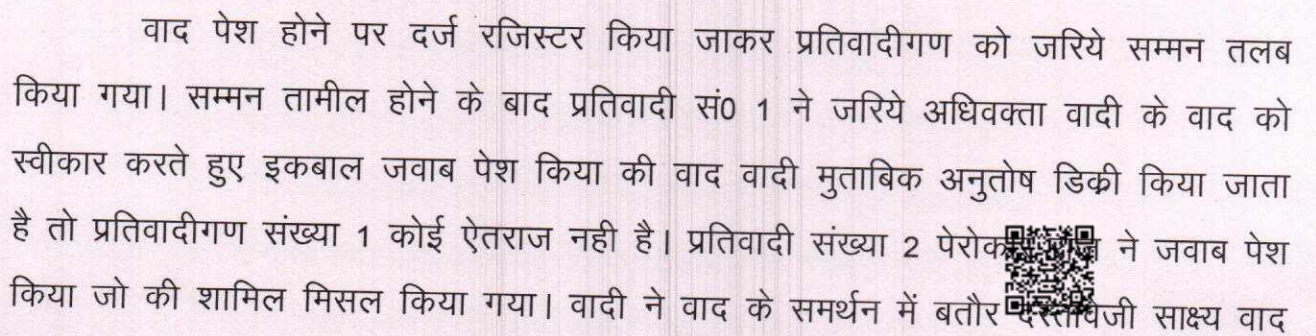 वाद पेश होने पर दर्ज रजिस्टर किया जाकर प्रतिवादीगण को जरिये सम्मन तलब
किया गया। सम्मन तामील होने के बाद प्रतिवादी सं0 1 ने जरिये अधिवक्ता वादी के वाद को
स्वीकार करते हुए इकबाल जवाब पेश किया की वाद वादी मुताबिक अनुतोष डिक्री किया जाता
है तो प्रतिवादीगण संख्या 1 कोई ऐतराज नही है। प्रतिवादी संख्या 2 ने जवाब पेश
किया जो की शामिल मिसल किया गया। वादी ने वाद के समर्थन में बतौर साक्ष्य वाद